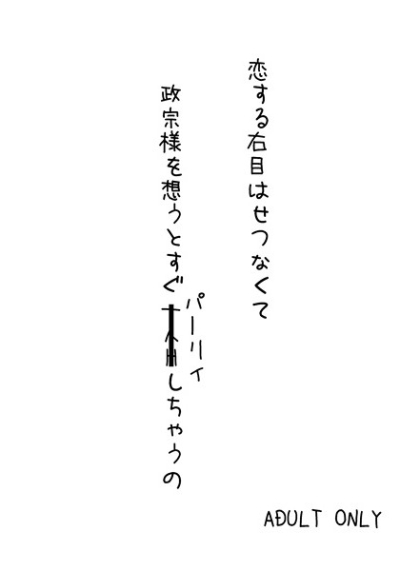 恋する右目はせつなくて
政宗様を想うとすぐしちゃうの
パーリィ
ADULT ONLY